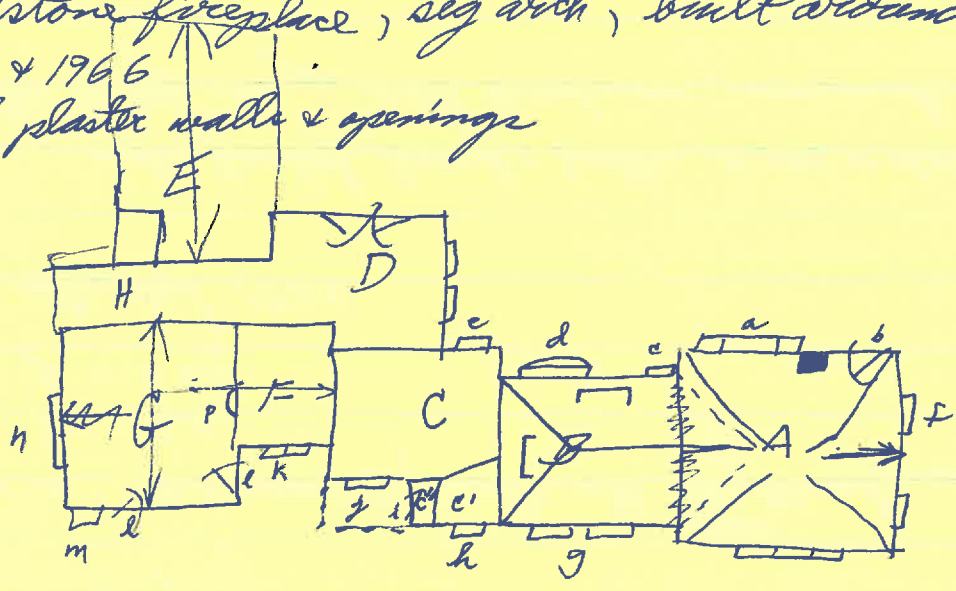 stone fireplace, seg arch, built around
& 1966
plaster walls & openings
E
D
H
e
d
c
a
b
C
A
f
n
G
p
F
l
k
j
i
c"
c'
h
g
m
l